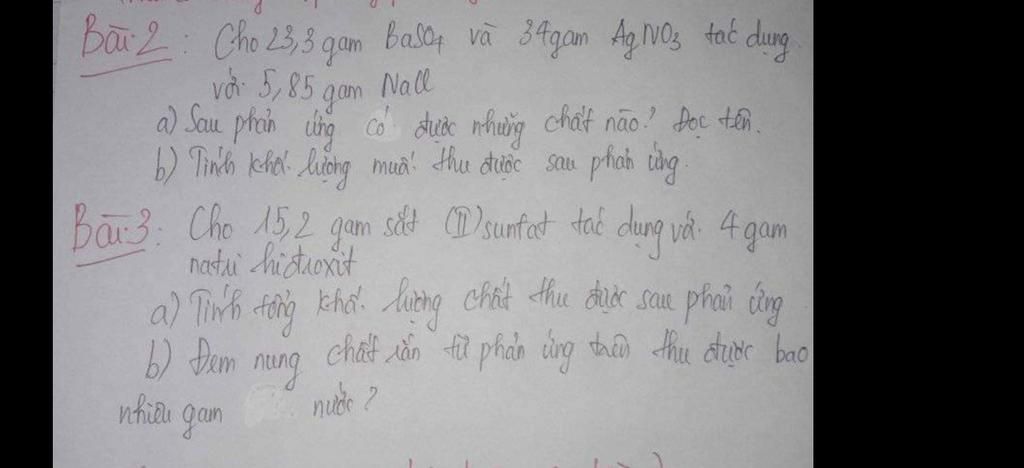 Bài 2: Cho 23,3 gam BaSO4 và 34gam AgNO3 tác dụng
với 5,85 gam NaCl
a) Sau phản ứng có được những chất nào? Đọc tên.
b) Tính khối lượng muối thu được sau phản ứng.
Bài 3: Cho 15,2 gam sắt (II) sunfat tác dụng với 4 gam
natri hiđroxit
a) Tính tổng khối lượng chất thu được sau phản ứng
b) Đem nung chất rắn từ phản ứng trên thu được bao
nhiêu gam nước?